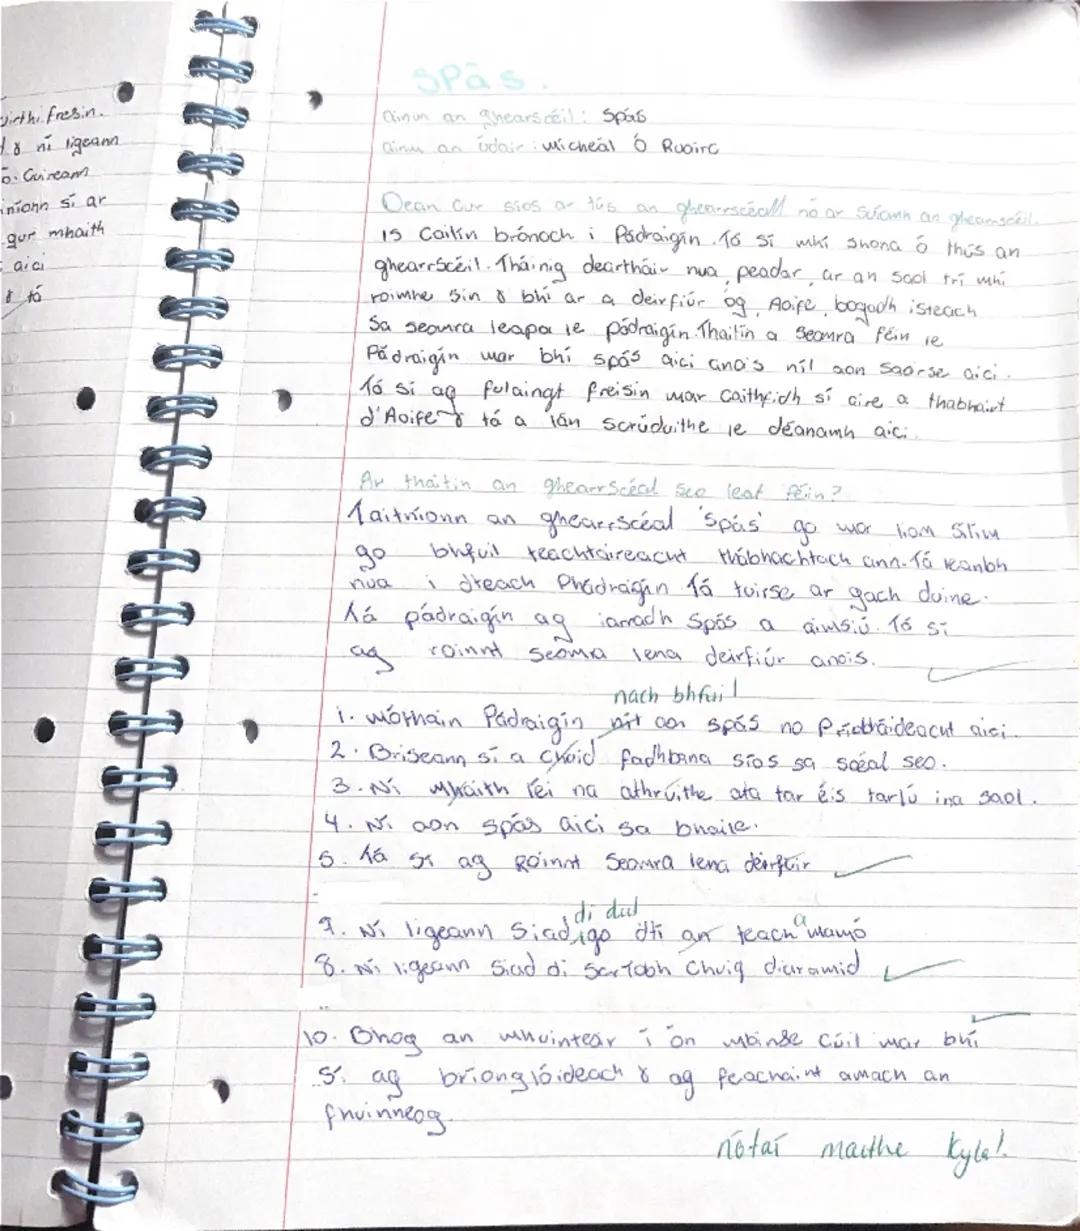 irthi freisin.
& ní ligeann
ó. Cuireann
íníonn sí ar
gur mhaith
aici
& tá
Spás.
ainm an ghearrscéil: Spás
ainm an údair: Micheál Ó Ruairc
Dean Cur síos ar tús an ghearrscéall nó ar Suíomh an ghearrscéil.
is Cailín brónach i Pádraigín. Tá sí mhí shona ó thús an
ghearrscéil. Tháinig deartháir nua, peadar, ar an Saol trí mhí
roimhe Sin & bhí ar a deirfiúr óg, Aoife, bogadh isteach
Sa seomra leapa le pádraigín. Thaitin a Seomra féin le
Pádraigín mar bhí spás aici anois níl aon Saoirse aici.
Tá sí ag fulaingt freisin mar caithfidh sí aire a thabhairt
d'Aoife & tá a lán scrúduithe le déanamh aici.
Ar thaitin an ghearrscéal Seo leat féin?
Taitníonn an ghearrscéal 'Spás' go mór liom Sílim
go bhfuil teachtaireacht thábhachtach ann. Tá leanbh
nua i dteach Phádraigín Tá tuirse ar gach duine.
Tá pádraigín ag iarradh Spás a aimsiú. Tá Sí
ag roinnt seomra lena deirfiúr anois.
nach bhfuil
1. mothaín Pádraigín níl aon spás no Príobháideacht aici.
2. Briseann sí a chuid fadhbana síos sa scéal seo.
3. Ní mhaith léi na athruithe ata tar éis tarlú ina saol.
4. Ní aon spás aici sa bhaile.
5. Tá sí ag Roinnt Seomra lena deirfiúr
di dul
7. Ní ligeann Siad go dtí an teach a mamó
8. Ní ligeann Siad di Seirtabh Chuig diaramid
10. Bhog an mhuinteár í ón mbinse Cúil mar bhí
Sí ag brionglóideach & ag feachaint amach an
fhuinneog.
nótaí maithe Kyle!